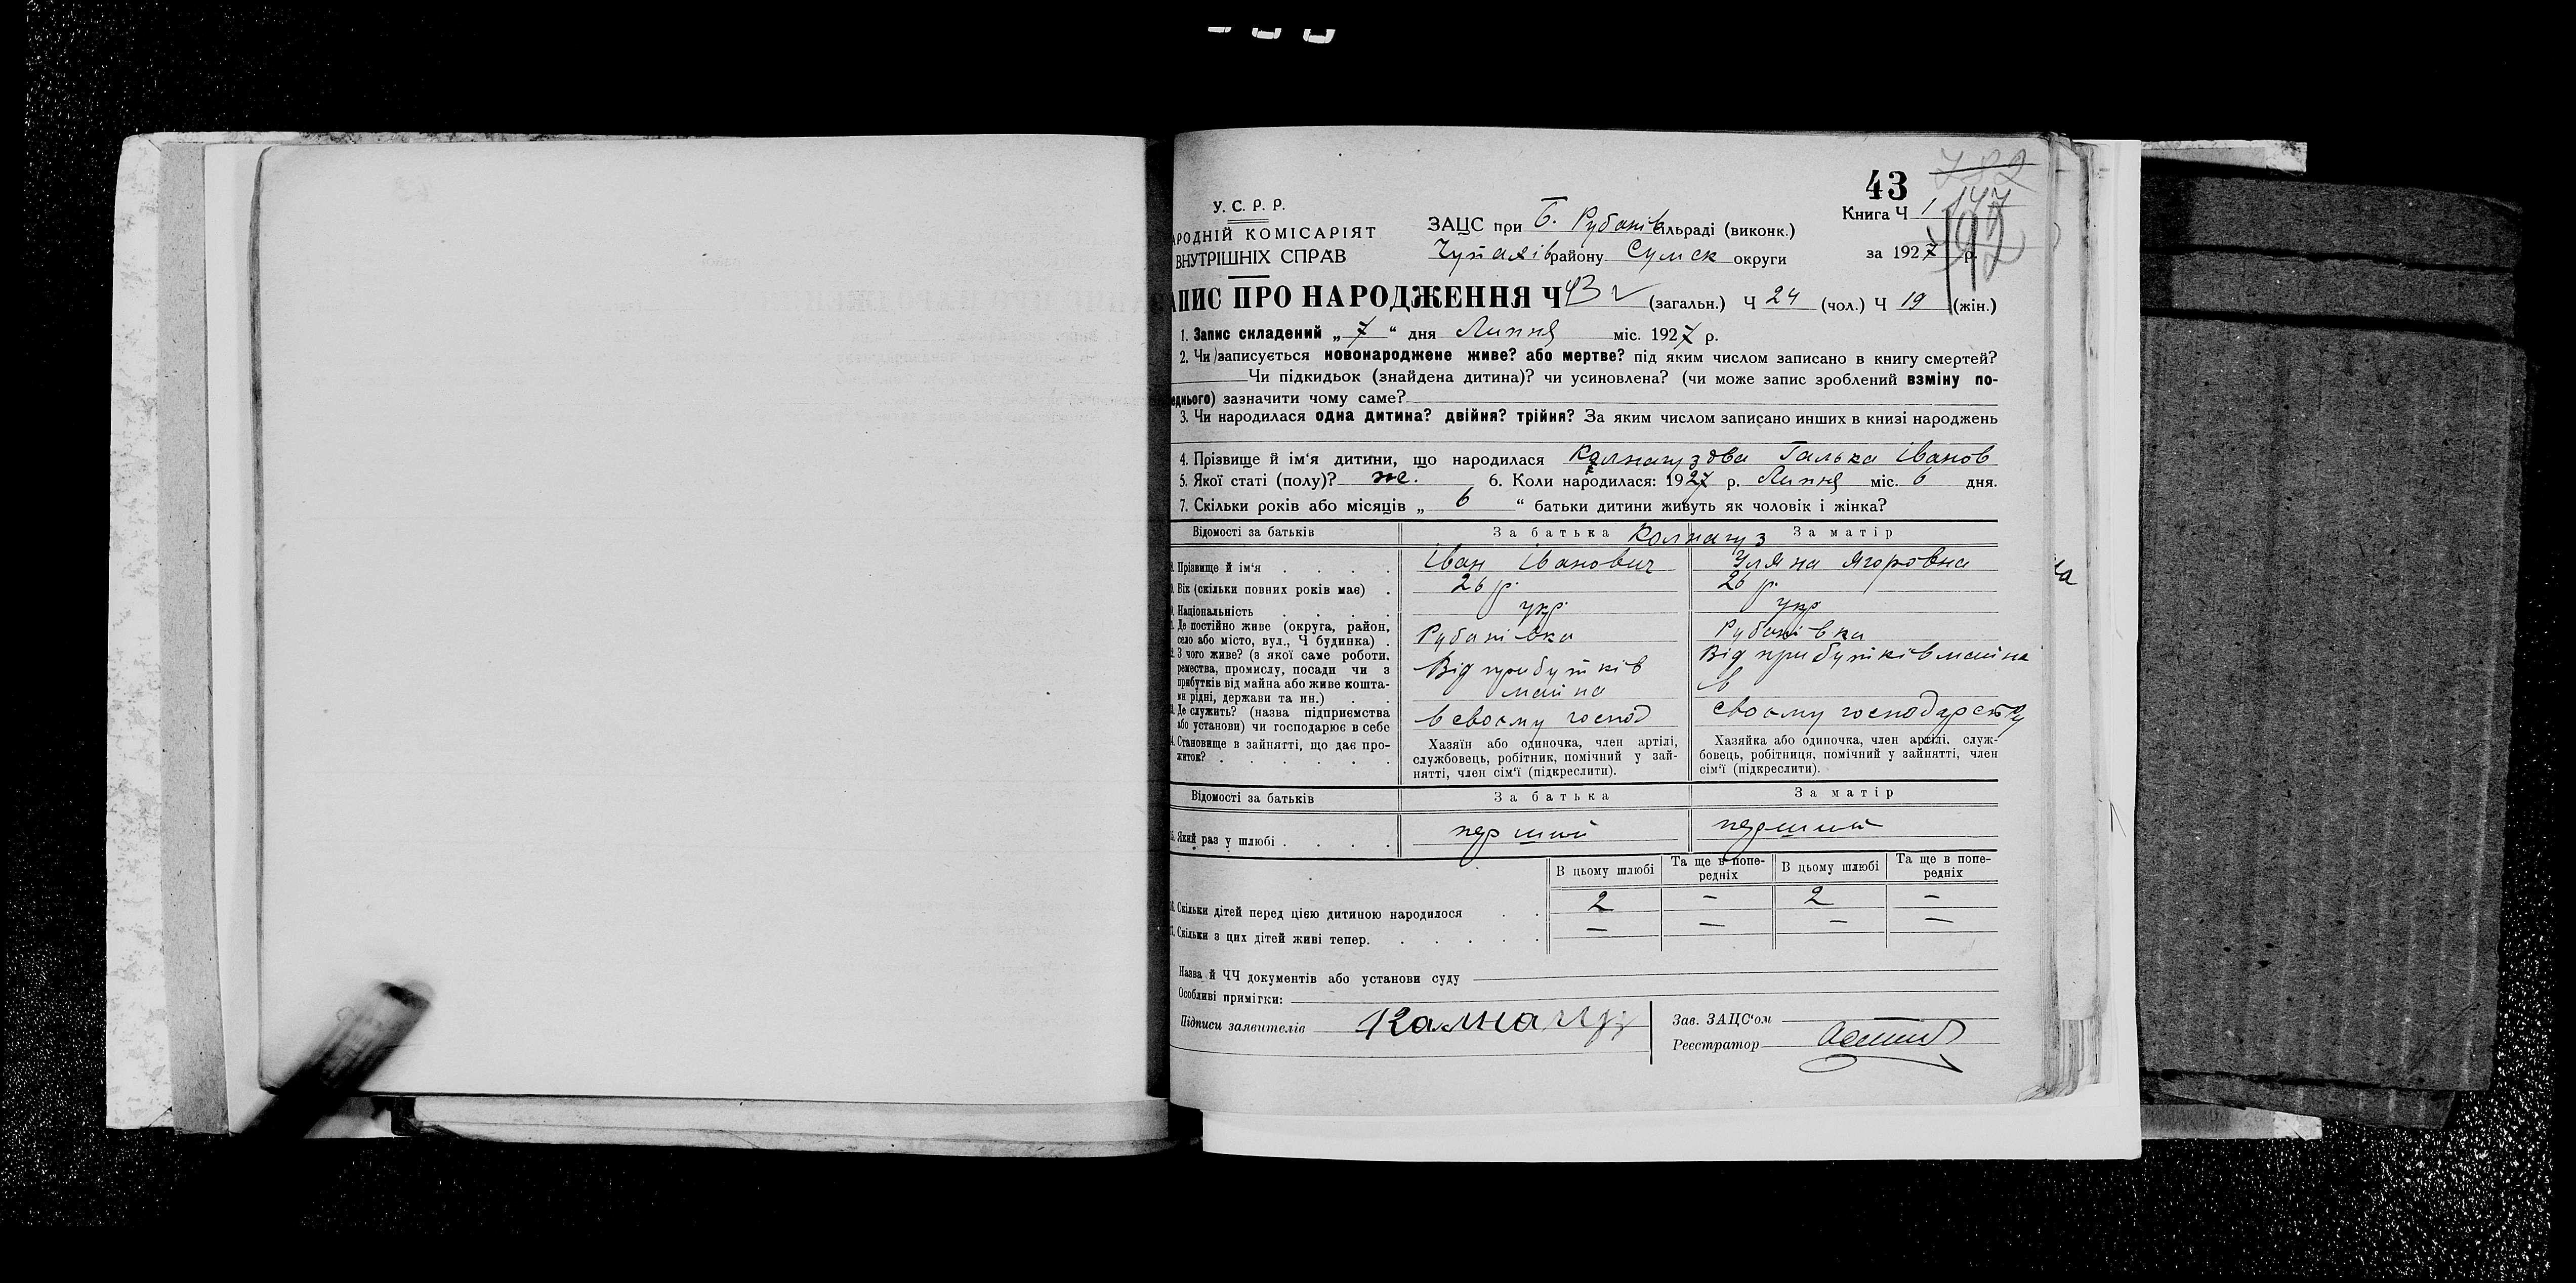 43
У. С. Р. Р.
АРОДНІЙ КОМІСАРІЯТ
ВНУТРІШНІХ СПРАВ
ЗАЦС при Б. Рубанів сільраді (виконк.)
району Сумск округи
Книга Ч 1
за 1927 р.
АПИС ПРО НАРОДЖЕННЯ Ч 43 (загальн.) Ч 24 (чол.) Ч 19 (жін.)
1. Запис складений „ 7 “ дня Липня міс. 1927 р.
2. Чи записується новонароджене живе? або мертве? під яким числом записано в книгу смертей?
Чи підкидьок (знайдена дитина)? чи усиновлена? (чи може запис зроблений взміну по-
еднього) зазначити чому саме?
3. Чи народилася одна дитина? двійня? трійня? За яким числом записано инших в книзі народжень
4. Прізвище й ім‘я дитини, що народилася Галька Іванов
5. Якої статі (полу)? ж. 6. Коли народилася: 1927 р. Липня міс. 6 дня.
7. Скільки років або місяців „ 6 “ батьки дитини живуть як чоловік і жінка?
Відомості за батьків За батька Колпагуз За матір
8. Прізвище й ім‘я . . . . Іван Іванович Уляна Ягоровна
9. Вік (скільки повних років має) . 26 р. 26 р.
Національність . . . . укр. укр
Де постійно живе (округа, район,
село або місто, вул., Ч будинка) . Рубанівка Рубанівка
2. З чого живе? (з якої саме роботи,
ремества, промислу, посади чи з
прибутків від майна або живе кошта-
ми рідні, держави та ин.) . .
Від прибутків
майна
Від прибутків майна
в
Де служить? (назва підприємства
або установи) чи господарює в себе
в своєму господ
своєму господарству
4. Становище в зайнятті, що дає про-
житок? . . . . . . .
Хазяїн або одиночка, член артілі,
службовець, робітник, помічний у зай-
нятті, член сім‘ї (підкреслити).
Хазяйка або одиночка, член артілі, служ-
бовець, робітниця, помічний у зайнятті, член
сім‘ї (підкреслити).
Відомості за батьків За батька За матір
Який раз у шлюбі . . . . перший перший
В цьому шлюбі Та ще в попе-
редніх В цьому шлюбі Та ще в попе-
редніх
Скільки дітей перед цією дитиною народилося . . 2 – 2 –
Скільки з цих дітей живі тепер. . . . . . – – – –
Назва й ЧЧ документів або установи суду
Особливі примітки:
Підписи заявителів
Зав. ЗАЦС‘ом
Реєстратор